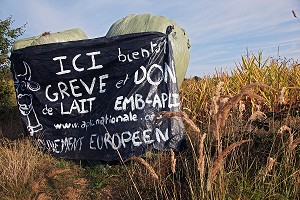 ICI bientôt
GRÈVE et DON
de LAIT EMB-APLI
www.apli nationale.org
MOUVEMENT EUROPÉEN